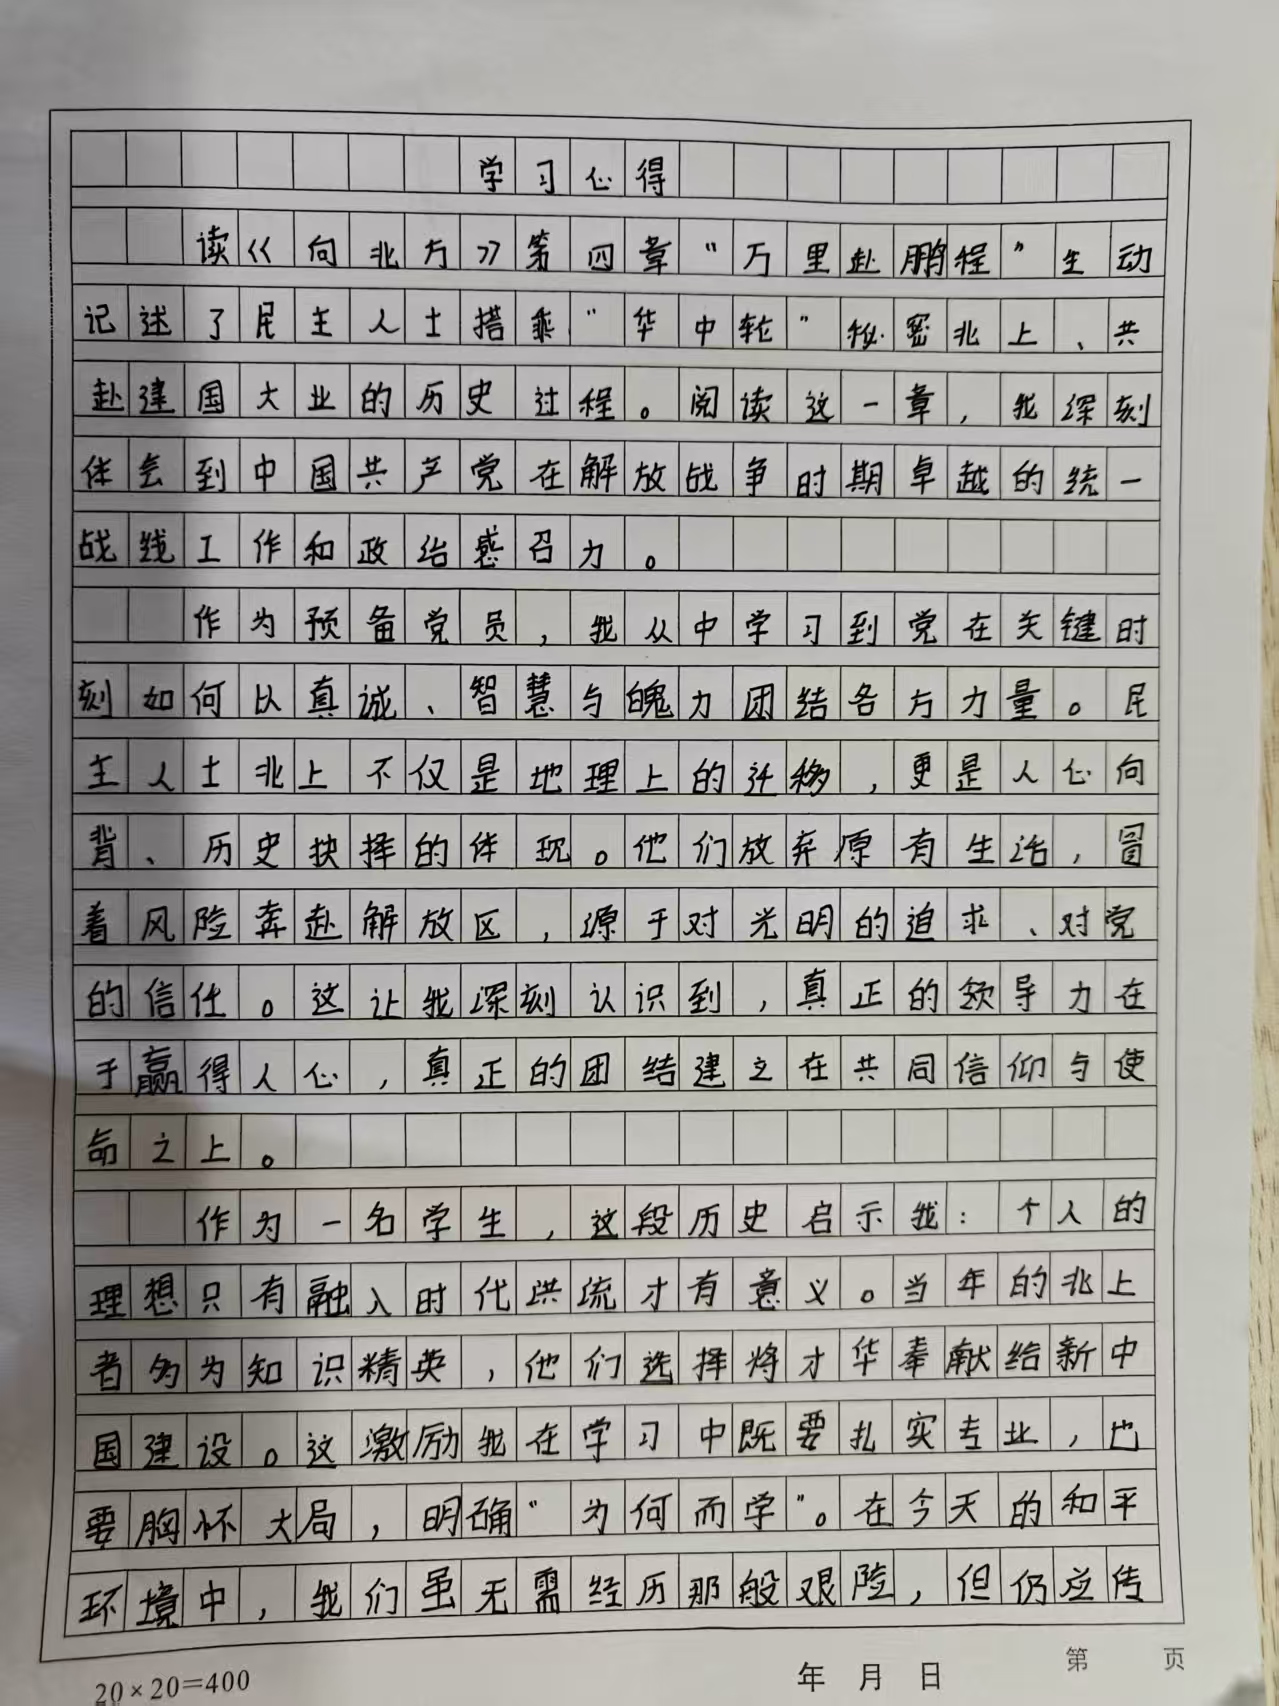 学习心得
读《向北方》第四章“万里赴鹏程”生动
记述了民主人士搭乘“华中轮”秘密北上、共
赴建国大业的历史过程。阅读这一章，我深刻
体会到中国共产党在解放战争时期卓越的统一
战线工作和政治感召力。
作为预备党员，我从中学习到党在关键时
刻如何以真诚、智慧与魄力团结各方力量。民
主人士北上不仅是地理上的迁移，更是人心向
背、历史抉择的体现。他们放弃原有生活，冒
着风险奔赴解放区，源于对光明的追求、对党
的信任。这让我深刻认识到，真正的领导力在
于赢得人心，真正的团结建立在共同信仰与使
命之上。
作为一名学生，这段历史启示我：个人的
理想只有融入时代洪流才有意义。当年的北上
者多为知识精英，他们选择将才华奉献给新中
国建设。这激励我在学习中既要扎实专业，也
要胸怀大局，明确“为何而学”。在今天的和平
环境中，我们虽无需经历那般艰险，但仍应传
20×20=400
年 月 日
第 页